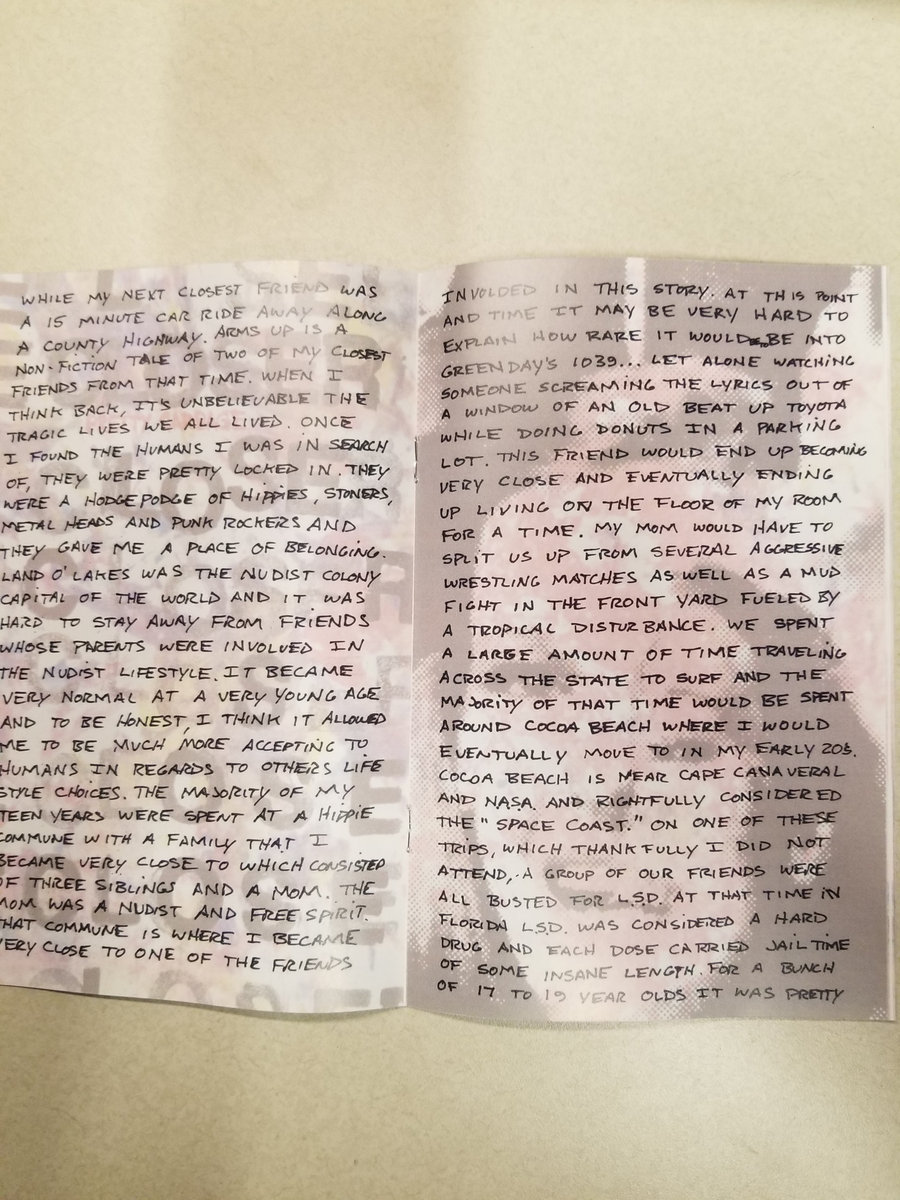 WHILE MY NEXT CLOSEST FRIEND WAS
A 15 MINUTE CAR RIDE AWAY ALONG
A COUNTY HIGHWAY. ARMS UP IS A
NON-FICTION TALE OF TWO OF MY CLOSEST
FRIENDS FROM THAT TIME. WHEN I
THINK BACK, IT'S UNBELIEVABLE THE
TRAGIC LIVES WE ALL LIVED. ONCE
I FOUND THE HUMANS I WAS IN SEARCH
OF, THEY WERE PRETTY LOCKED IN. THEY
WERE A HODGEPODGE OF HIPPIES, STONERS,
METAL HEADS AND PUNK ROCKERS AND
THEY GAVE ME A PLACE OF BELONGING.
LAND O'LAKES WAS THE NUDIST COLONY
CAPITAL OF THE WORLD AND IT WAS
HARD TO STAY AWAY FROM FRIENDS
WHOSE PARENTS WERE INVOLVED IN
THE NUDIST LIFESTYLE. IT BECAME
VERY NORMAL AT A VERY YOUNG AGE
AND TO BE HONEST, I THINK IT ALLOWED
ME TO BE MUCH MORE ACCEPTING TO
HUMANS IN REGARDS TO OTHERS LIFE
STYLE CHOICES. THE MAJORITY OF MY
TEEN YEARS WERE SPENT AT A HIPPIE
COMMUNE WITH A FAMILY THAT I
BECAME VERY CLOSE TO WHICH CONSISTED
OF THREE SIBLINGS AND A MOM. THE
MOM WAS A NUDIST AND FREE SPIRIT.
THAT COMMUNE IS WHERE I BECAME
VERY CLOSE TO ONE OF THE FRIENDS
INVOLDED IN THIS STORY. AT THIS POINT
AND TIME IT MAY BE VERY HARD TO
EXPLAIN HOW RARE IT WOULD BE INTO
GREENDAY'S 1039... LET ALONE WATCHING
SOMEONE SCREAMING THE LYRICS OUT OF
A WINDOW OF AN OLD BEAT UP TOYOTA
WHILE DOING DONUTS IN A PARKING
LOT. THIS FRIEND WOULD END UP BECOMING
VERY CLOSE AND EVENTUALLY ENDING
UP LIVING ON THE FLOOR OF MY ROOM
FOR A TIME. MY MOM WOULD HAVE TO
SPLIT US UP FROM SEVERAL AGGRESSIVE
WRESTLING MATCHES AS WELL AS A MUD
FIGHT IN THE FRONT YARD FUELED BY
A TROPICAL DISTURBANCE. WE SPENT
A LARGE AMOUNT OF TIME TRAVELING
ACROSS THE STATE TO SURF AND THE
MAJORITY OF THAT TIME WOULD BE SPENT
AROUND COCOA BEACH WHERE I WOULD
EVENTUALLY MOVE TO IN MY EARLY 20S.
COCOA BEACH IS NEAR CAPE CANAVERAL
AND NASA. AND RIGHTFULLY CONSIDERED
THE "SPACE COAST." ON ONE OF THESE
TRIPS, WHICH THANKFULLY I DID NOT
ATTEND, A GROUP OF OUR FRIENDS WERE
ALL BUSTED FOR L.S.D. AT THAT TIME IN
FLORIDA L.S.D. WAS CONSIDERED A HARD
DRUG AND EACH DOSE CARRIED JAIL TIME
OF SOME INSANE LENGTH. FOR A BUNCH
OF 17 TO 19 YEAR OLDS IT WAS PRETTY